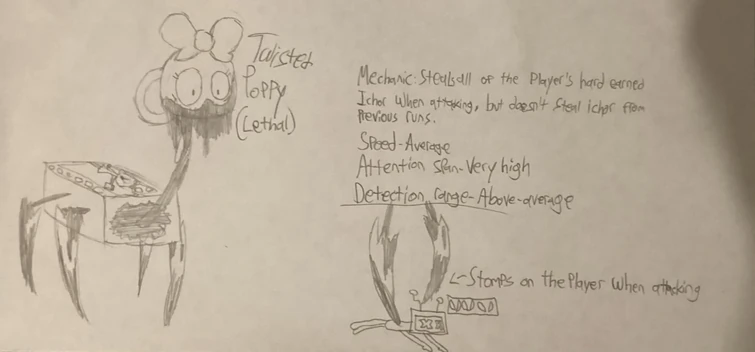 Twisted
Poppy
(Lethal)
Mechanic: Steals all of the Player's hard earned
Ichor when attacking, but doesn't steal ichor from
previous runs.
Speed-Average
Attention span-Very high
Detection range-Above-average
Stomps on the Player when attacking